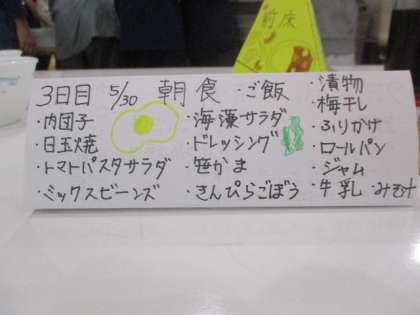 3日目 5/30 朝食
・肉団子
・目玉焼
・トマトパスタサラダ
・ミックスビーンズ
・海藻サラダ
・ドレッシング
・笹かま
・きんぴらごぼう
・ご飯
・漬物
・梅干し
・ふりかけ
・ロールパン
・ジャム
・牛乳・みそ汁